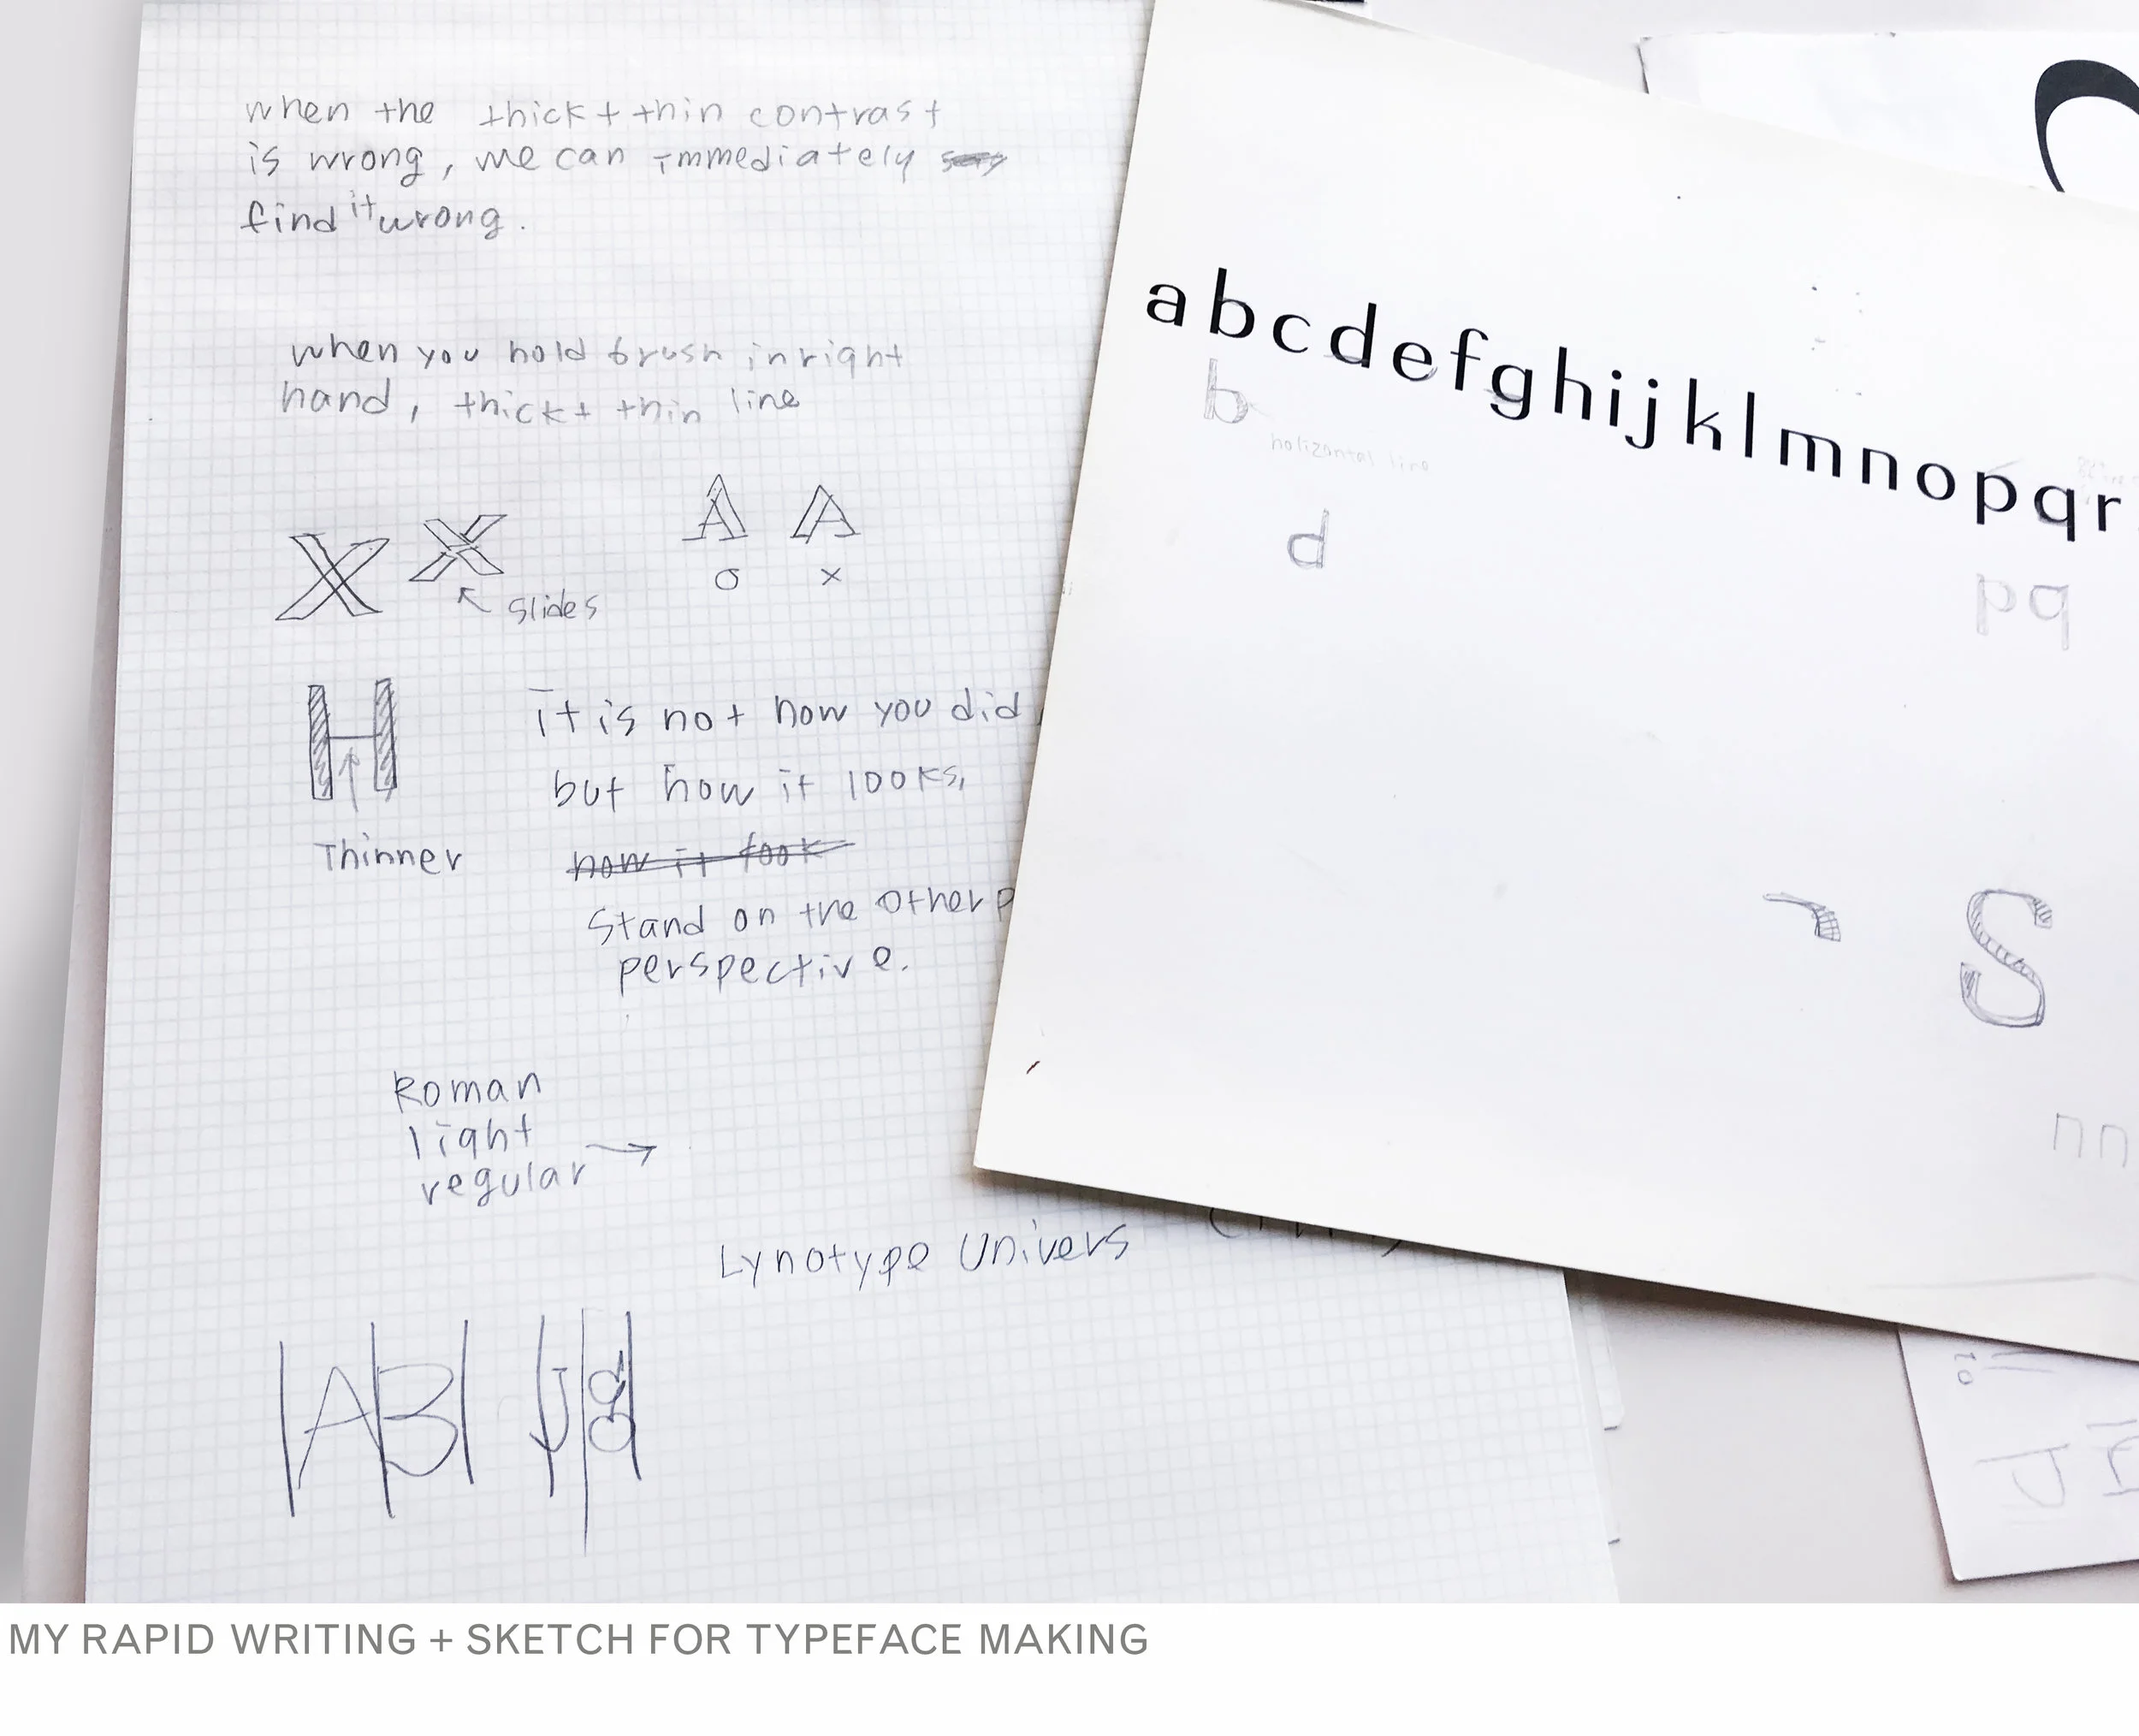 when the thick + thin contrast
is wrong, we can immediately
find it wrong.
when you hold brush in right
hand, thick + thin line
X X
slides
A A
o x
H
Thinner
it is not how you did,
but how it looks,
how it look
Stand on the other p
perspective.
Roman
light
regular →
Lynotype Univers
AB
abcdefghijklmnopqr
b
holizontal line
d
pq
S
nn
MY RAPID WRITING + SKETCH FOR TYPEFACE MAKING